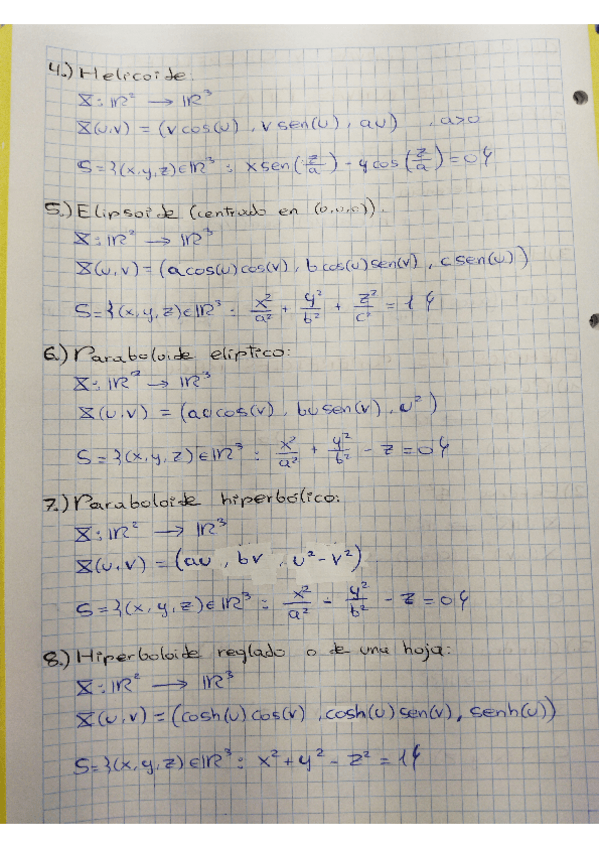 4.) Helicoide:
X: ℝ² → ℝ³
X(u,v) = (v cos(u), v sen(u), au) , a>0
S={(x,y,z)∈ℝ³ : x sen(z/a) - y cos(z/a) = 0}
5.) Elipsoide (centrado en (0,0,0)).
X: ℝ² → ℝ³
X(u,v) = (a cos(u) cos(v), b cos(u) sen(v), c sen(u))
S={(x,y,z)∈ℝ³ : x²/a² + y²/b² + z²/c² = 1}
6.) Paraboloide elíptico:
X: ℝ² → ℝ³
X(u,v) = (au cos(v), bu sen(v), u²)
S={(x,y,z)∈ℝ³ : x²/a² + y²/b² - z = 0}
7.) Paraboloide hiperbólico:
X: ℝ² → ℝ³
X(u,v) = (au, bv, u²-v²)
S={(x,y,z)∈ℝ³ : x²/a² - y²/b² - z = 0}
8.) Hiperboloide reglado o de una hoja:
X: ℝ² → ℝ³
X(u,v) = (cosh(u) cos(v), cosh(u) sen(v), senh(u))
S={(x,y,z)∈ℝ³ : x² + y² - z² = 1}